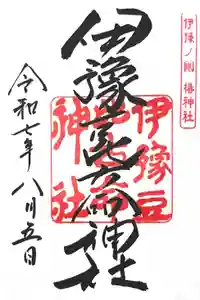 伊豫ノ國 椿神社
伊豫豆比古命神社
伊豫豆
神社
令和七年八月五日